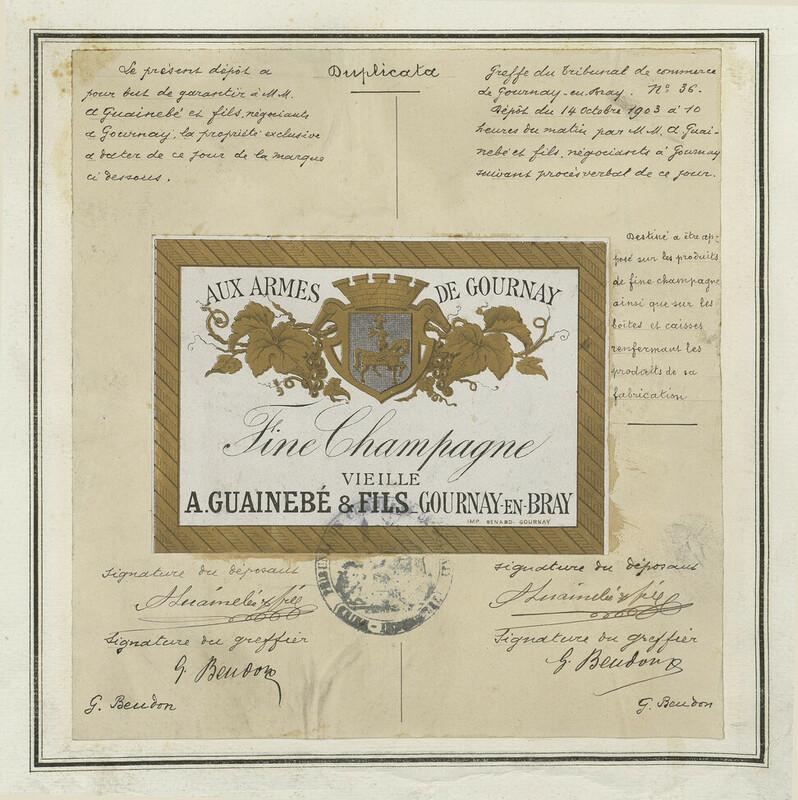 Duplicata
Le présent dépôt a
pour but de garantir à M.M.
A Guainebé et fils, négociants
à Gournay, la propriété exclusive
à dater de ce jour de la marque
ci dessous.
Greffe du tribunal de commerce
de Gournay-en-Bray. N° 36.
Dépôt du 14 Octobre 1903 à 10
heures du matin par M.M. A Guai-
nebé et fils, négociants à Gournay
suivant procès verbal de ce jour.
Destiné a être ap-
posé sur les produits
de fine champagne
ainsi que sur les
boîtes et caisses
renfermant les
produits de sa
fabrication
AUX ARMES DE GOURNAY
Fine Champagne
VIEILLE
A. GUAINEBÉ & FILS GOURNAY-EN-BRAY
IMP. BENARD. GOURNAY
Signature du déposant
A Guainebé & fils
Signature du greffier
G. Beudon
G. Beudon
Signature du déposant
A Guainebé & fils
Signature du greffier
G. Beudon
G. Beudon